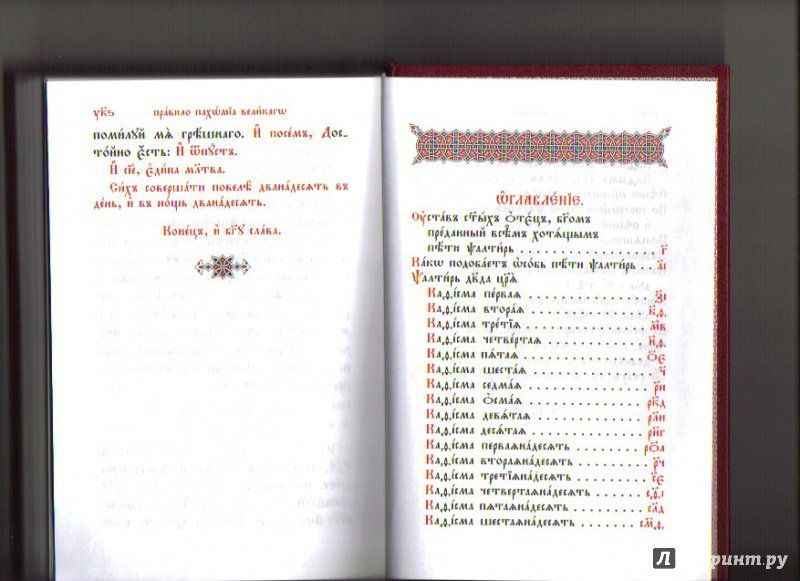 ук҃ѕ пра́вило пахѡ́мїа вели́кагѡ
поми́луй мѧ̀ грѣ́шнаго. И҆ посе́мъ, Дос-
то́йно є҆́сть: И҆ ѿпꙋ́стъ.
И҆ сїѐ, є҆ди́на мл҃тва.
Си́хъ соверша́ти повелѣ̀ двана́десѧть въ
де́нь, и҆ въ но́щь двана́десѧть.
Коне́цъ, и҆ бг҃ꙋ сла́ва.
Ѡ҆главле́нїе.
Оу҆ста́въ ст҃ы́хъ ѻ҆те́цъ, бг҃омъ
пре́данный всѣ̑мъ хотѧ́щымъ
пѣ́ти ѱалти́рь . . . . . . . . . . г҃
Ка́кѡ подоба́етъ ѡ҆со́бь пѣ́ти ѱалти́рь . . а҃і
Ѱалти́рь дв҃да цр҃ѧ̀
Каѳі́сма пе́рваѧ . . . . . . . . . . з҃і
Каѳі́сма втора́ѧ . . . . . . . . . . к҃ѳ
Каѳі́сма тре́тїѧ . . . . . . . . . . м҃в
Каѳі́сма четве́ртаѧ . . . . . . . . . . н҃ѳ
Каѳі́сма пѧ́таѧ . . . . . . . . . . ѻ҃є
Каѳі́сма шеста́ѧ . . . . . . . . . . ч҃
Каѳі́сма седма́ѧ . . . . . . . . . . р҃и
Каѳі́сма ѻ҆сма́ѧ . . . . . . . . . . рк҃д
Каѳі́сма девѧ́таѧ . . . . . . . . . . рл҃и
Каѳі́сма десѧ́таѧ . . . . . . . . . . рн҃г
Каѳі́сма перваѧна́десѧть . . . . . . . . рѻ҃а
Каѳі́сма втораѧна́десѧть . . . . . . . . рч҃
Каѳі́сма третїѧна́десѧть . . . . . . . . с҃є
Каѳі́сма четвертаѧна́десѧть . . . . . . сѳ҃і
Каѳі́сма пѧтаѧна́десѧть . . . . . . . . сл҃д
Каѳі́сма шестаѧна́десѧть . . . . . . . . см҃ѳ
Лабиринт.ру